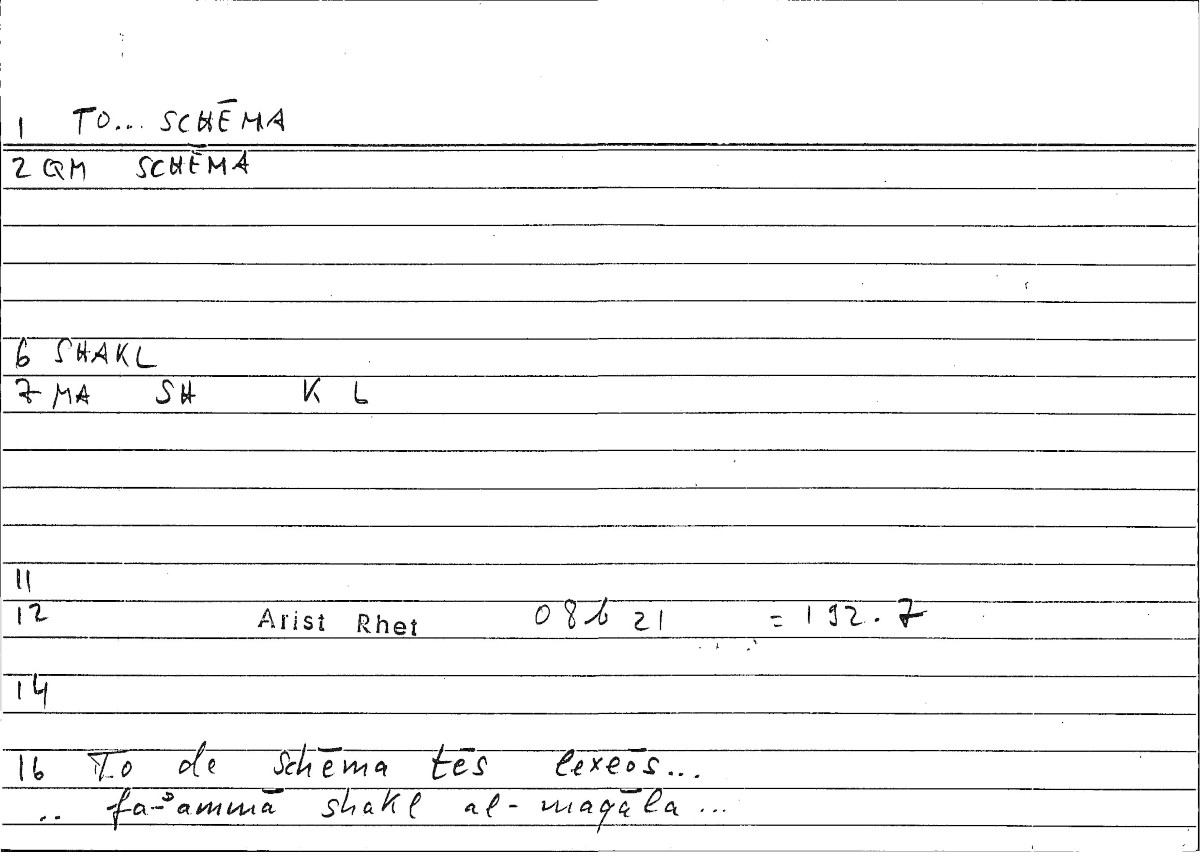 1 TO... SCHĒMA
2 QM SCHĒMA
6 SHAKL
7 MA SH K L
11
12 Arist Rhet 08b 21 = 192.7
14
16 To de schēma tēs lexeōs...
.. fa-ʾammā shakl al-maqāla ...